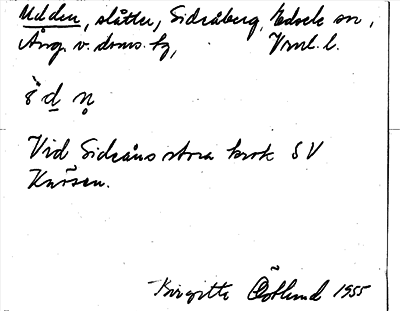 Udden, slåtter, Sidsåberg, Edsele sn,
Ång. v. doms. hg, Vrml. l.
Vid Sidsåns stora krok SV
Knösen.
Birgitte Östlund 1955